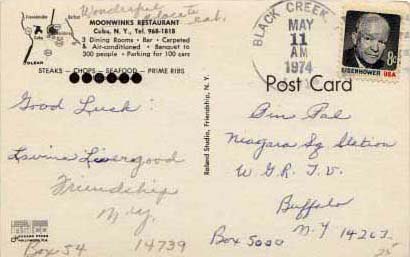 Wonderful
locate
eat.
MOONWINKS RESTAURANT
Cuba, N. Y., Tel. 968-1818
3 Dining Rooms • Bar • Carpeted
Air-conditioned • Banquet to
300 people • Parking for 100 cars
OLEAN
STEAKS — CHOPS — SEAFOOD — PRIME RIBS
Good Luck!
Lavina Livergood
Friendship
N.Y.
Box 54 14739
Roland Studio, Friendship, N. Y.
BLACK CREEK
MAY
11
AM
1974
EISENHOWER USA
8c
Post Card
Pen Pal
Niagara Sq Station
W. G. R. T.V.
Buffalo
N-Y 14202.
Box 5000
25